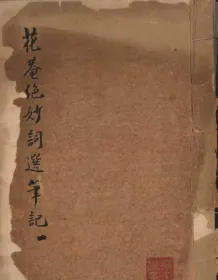 花菴絶妙詞選筆記一